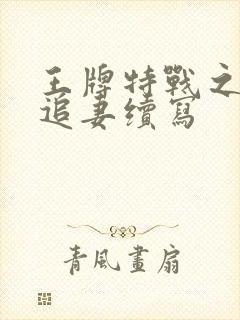 王牌特戰之
追妻續寫
青風畫扇